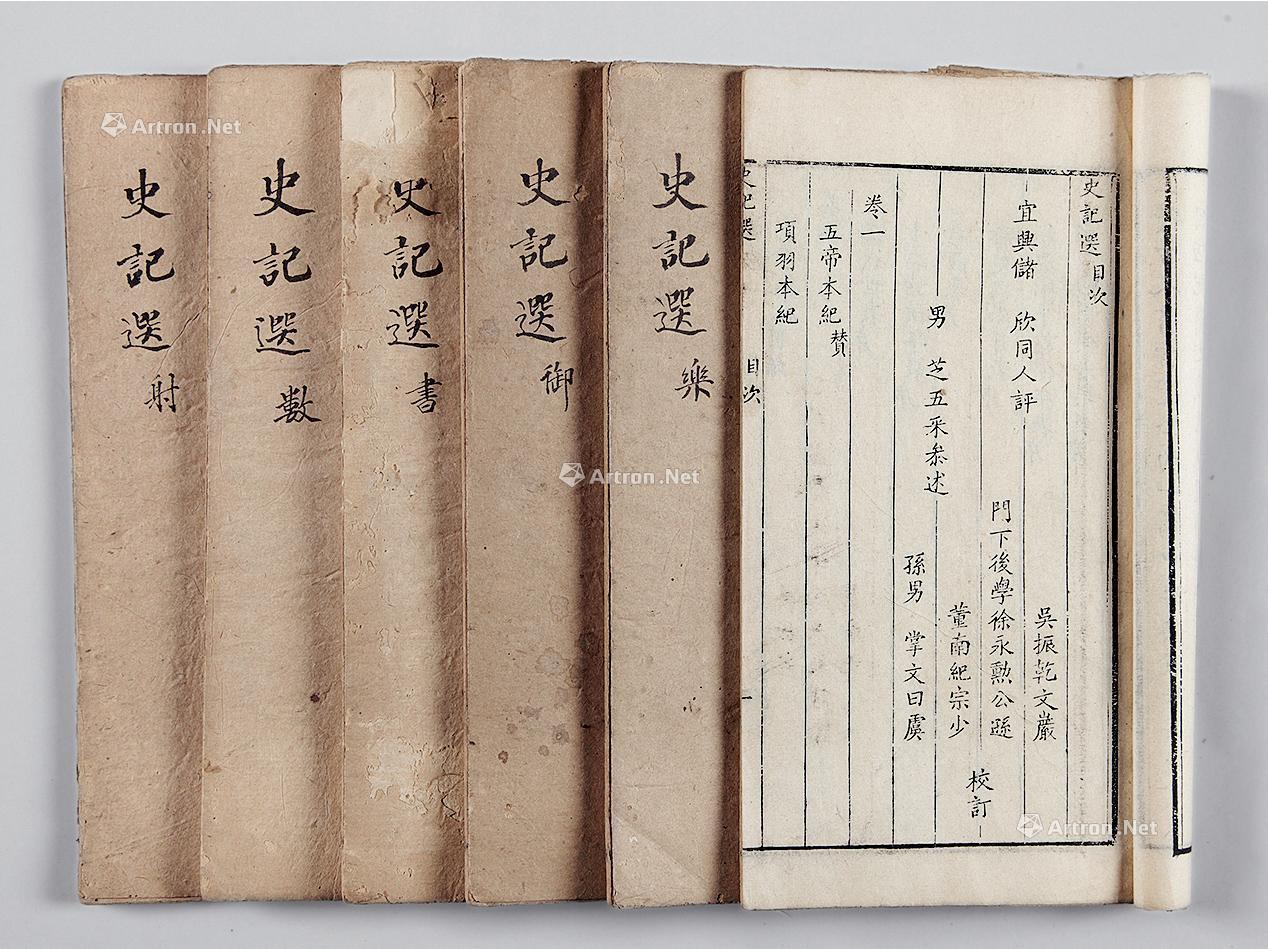 史記選目次
宜興儲 欣同人評
吳振乾文巖
門下後學徐永勲公遜
董南紀宗少
校訂
男 芝五采叅述
孫男 掌文曰虞
卷一
五帝本紀贊
項羽本紀
史記選 目次 一
史記選 樂
史記選 御
史記選 書
史記選 數
史記選 射
Artron.Net
Artron.Net
Artron.Net